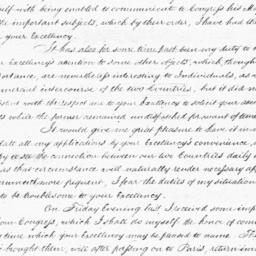 self with being enabled to communicate to Congress his Ma
the important subjects, which by their order, I have had th
your Excellency.
It has also for some time past been my duty to
Excellency's attention to some other objects, which, though
are nevertheless interesting to Individuals, as
mercial intercourse of the two Countries, but it did no
with the respect due to your Excellency to solicit your atten
while the former remained undispatched for want of time
It would give me great pleasure to have it in m
all my applications by your Excellency's convenience,
the connection between our two Countries daily
as that circumstance will naturally render necessary app
frequent, I fear the duties of my situation
to be troublesome to your Excellency.
On Friday Evening last I received some impor
Congress, which I shall do myself the honor of comm
time which your Excellency may be pleased to name. Th
brought them, will after passing on to Paris, return imm